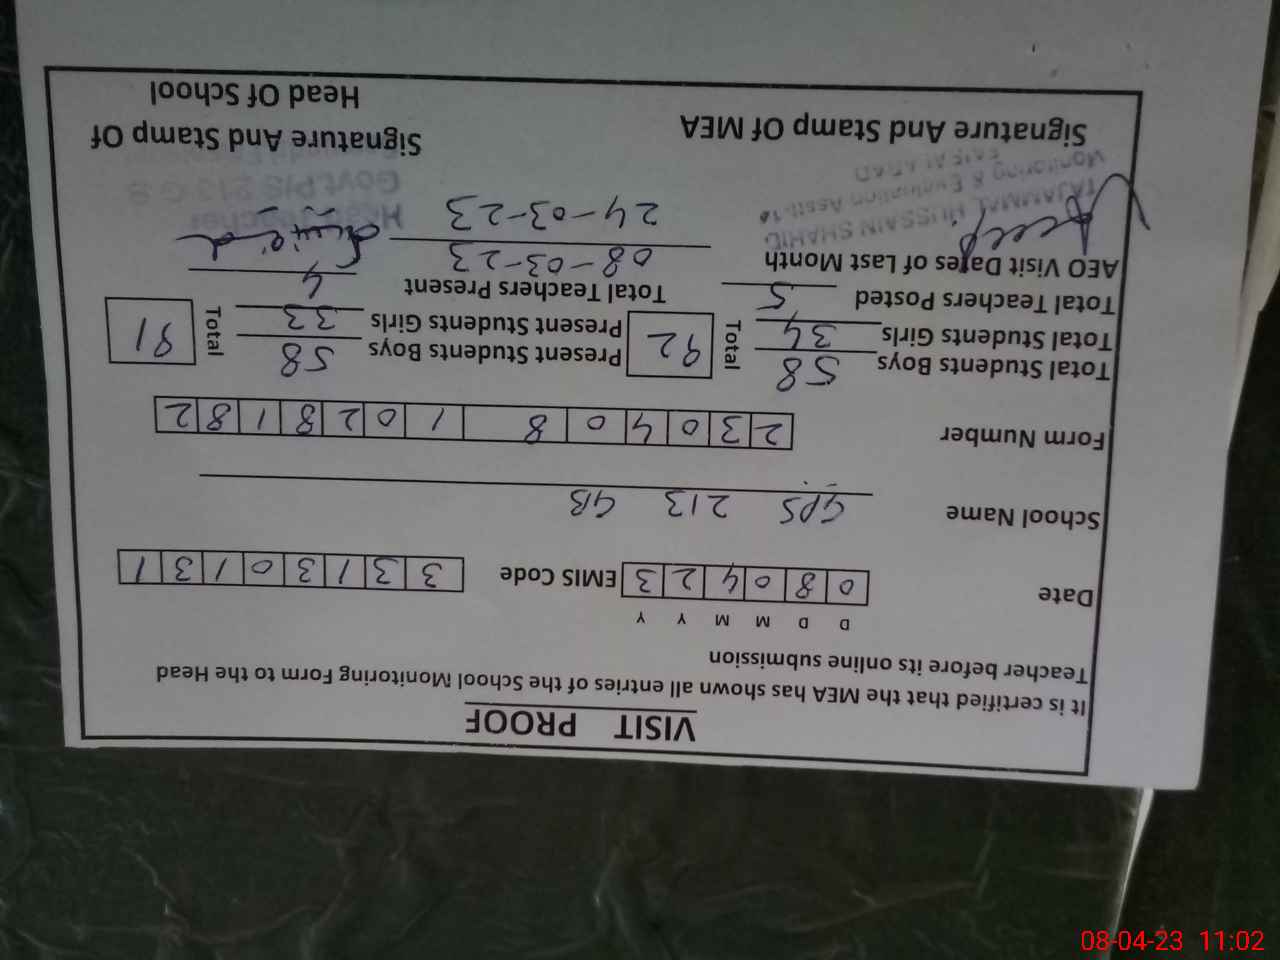 VISIT PROOF
It is certified that the MEA has shown all entries of the School Monitoring Form to the Head
Teacher before its online submission
D D M M Y Y
Date 0 8 0 4 2 3 EMIS Code 3 3 1 3 0 1 3 1
School Name GPS 213 GB
Form Number 2 3 0 4 0 8 1 0 2 8 1 8 2
Total Students Boys 58 Total 92 Present Students Boys 58 Total 91
Total Students Girls 34 Present Students Girls 33
Total Teachers Posted 5 Total Teachers Present 4
AEO Visit Dates of Last Month 08-03-23
24-03-23
TAJAMMAL HUSSAIN SHAHID
Monitoring & Evaluation Asstt-
FAISALABAD
Head Teacher
Govt.P/S 213 G.B
Signature And Stamp Of MEA
Signature And Stamp Of
Head Of School
08-04-23 11:02